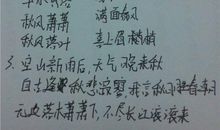 秋风萧萧 满面春风
秋风落叶 喜上眉梢
3. 空山新雨后，天气晚来秋
自古逢秋悲寂寥 我言秋日胜春朝
无边落木萧萧下，不尽长江滚滚来